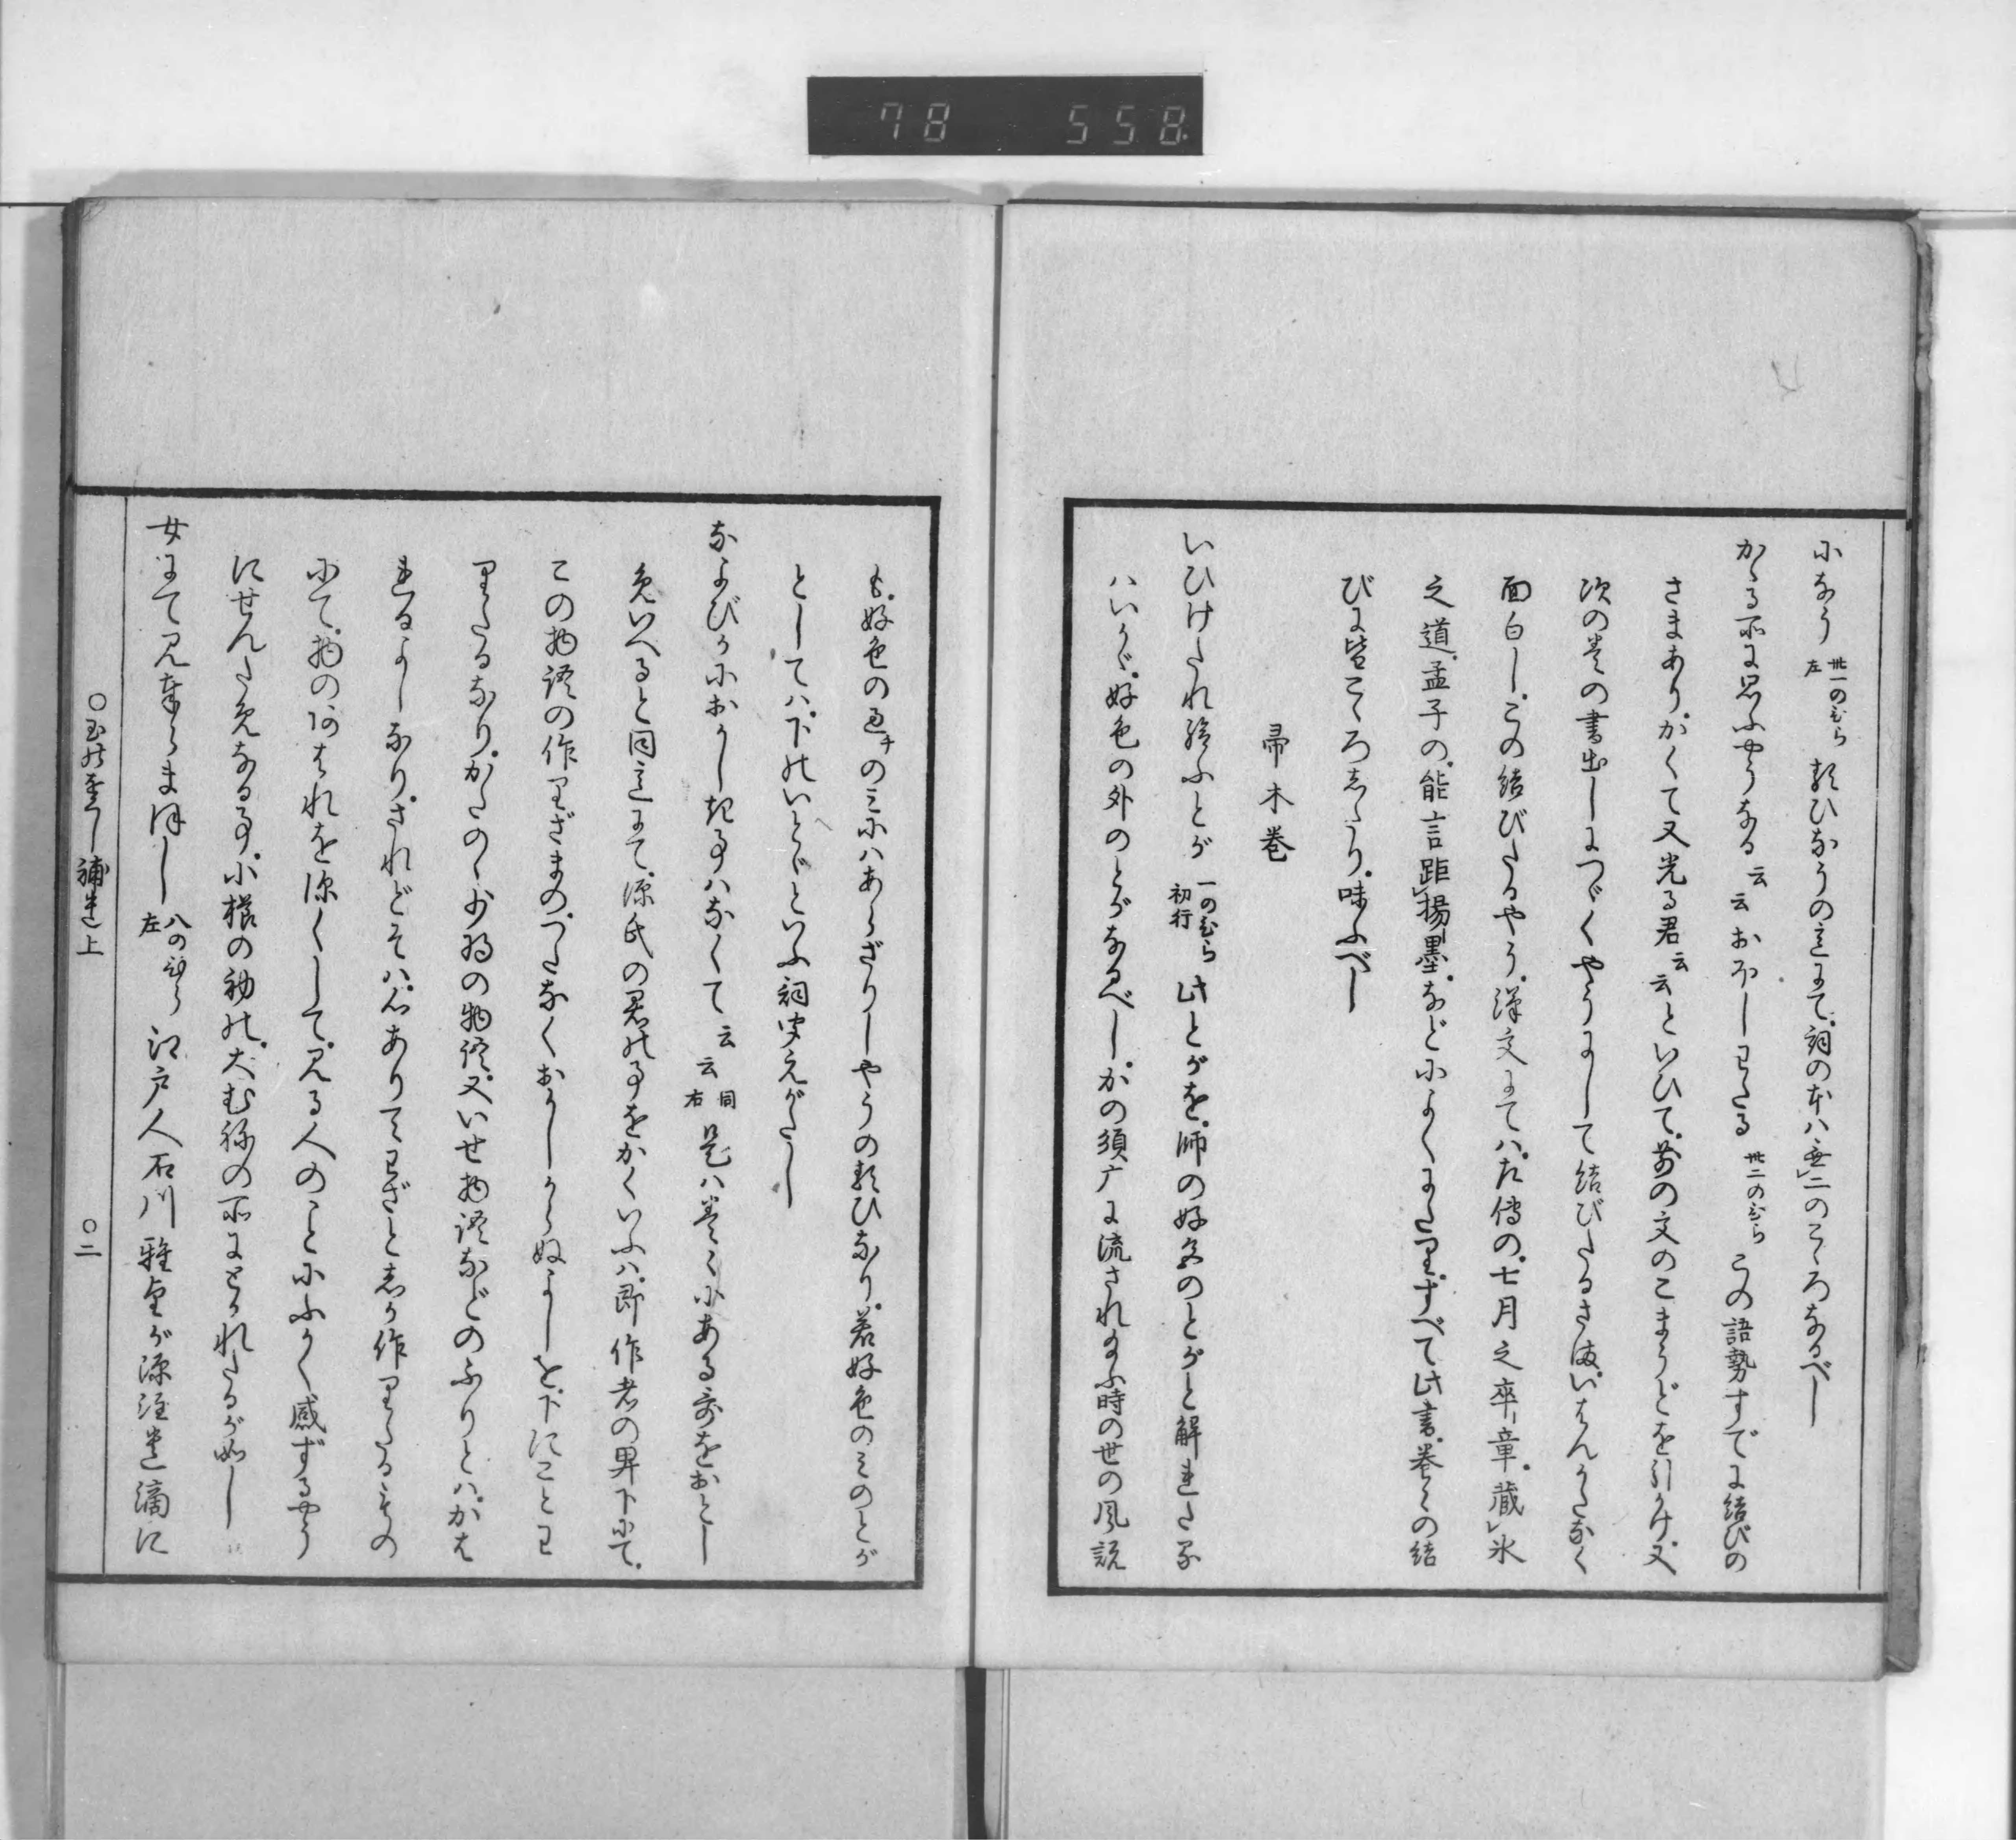 78 558
になう 卅一のひら左 類ひなうの意にて、詞の本ハ無二のこゝろなるべし
かゝる所に思ふやうなる云云おぼしわたる 卅二のひら この語勢すでに結びの
さまあり、かくて又光る君云云といひて、前の文のこまうどを引かけ、又
次の巻の書出しにつゞくやうにして結びたるさま、いはんかたなく
面白し、この結びたるやう、漢文にてハ、左傳の、七月之卒章、蔵氷
之道、孟子の、能言距揚墨、などによくにたり、すべて此書、巻々の結
びに皆こゝろしたり、味ふべし
帚木巻
いひけたれ給ふとが 一のひら初行 此とがを、師の好色のとがと解れたる
ハいかゞ、好色の外のとがなるべし、かの須广に流され給ふ時の世の風説
も、好色の過チのミにハあらざりしやうの類ひなり、若好色のミのとが
としてハ、下のいとゞといふ詞聞えがたし
なよびかにおかしき事ハなくて云云 同右 是ハ巻々にある哥をおとし
めいへると同意にて、源氏の君の事をかくいふハ、即作者の卑下にて、
この物語の作りざまの、つたなくおかしからぬよしを、下にことわ
りたるなり、かたのゝ少将の物語、又いせ物語などのふりとハ、かは
れるよしなり、されどそハ、心ありてわざとしか作りたるものの
にて、物のあはれを深くして、見る人のことにふかく感ずるやう
にせんためなる事、小櫛の初の、大むねの所にとかれたるが如し
女にて見奉らまほし 八のひら左 江戸人石川雅望が源注遺滴に
○玉の小櫛補遺上 ○二